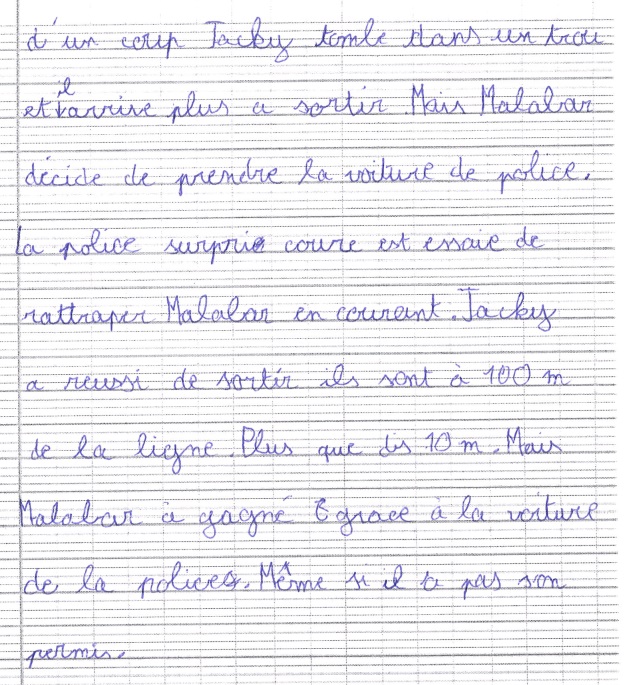 d'un coup Jacky tombe dans un trou
et il arrive plus a sortir. Mais Malabar
décide de prendre la voiture de police.
la police surprie coure est essaie de
rattraper Malabar en courant. Jacky
a reussi de sortir ils sont à 100 m
de la ligne. Plus que dis 10 m. Mais
Malabar à gagné grace à la voiture
de la police. Même si il a pas son
permis.